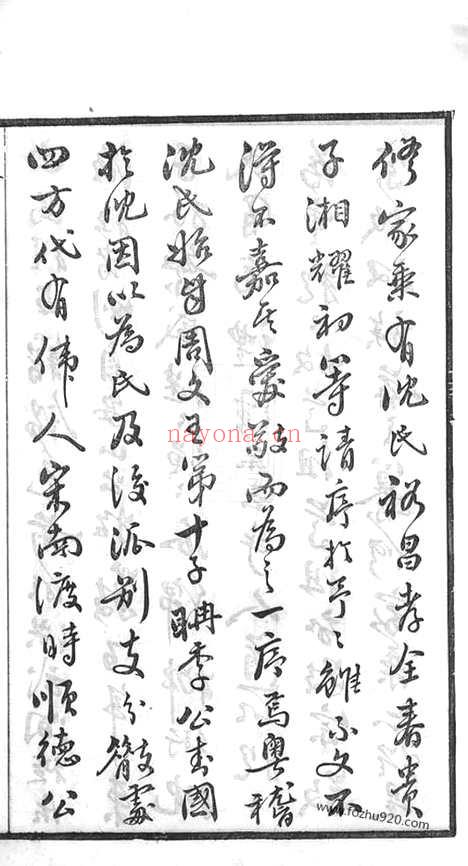 修家乘有沈氏裕昌孝全春貴
子湘耀初等請序於予予雖不文不
得不嘉其愛敬而為之一序焉粵稽
沈氏始自周文王第十子聃季公封國
於沈因以為氏及後派別支分散處
四方代有偉人宋南渡時順德公
nayona.cn
www.fozhu920.com